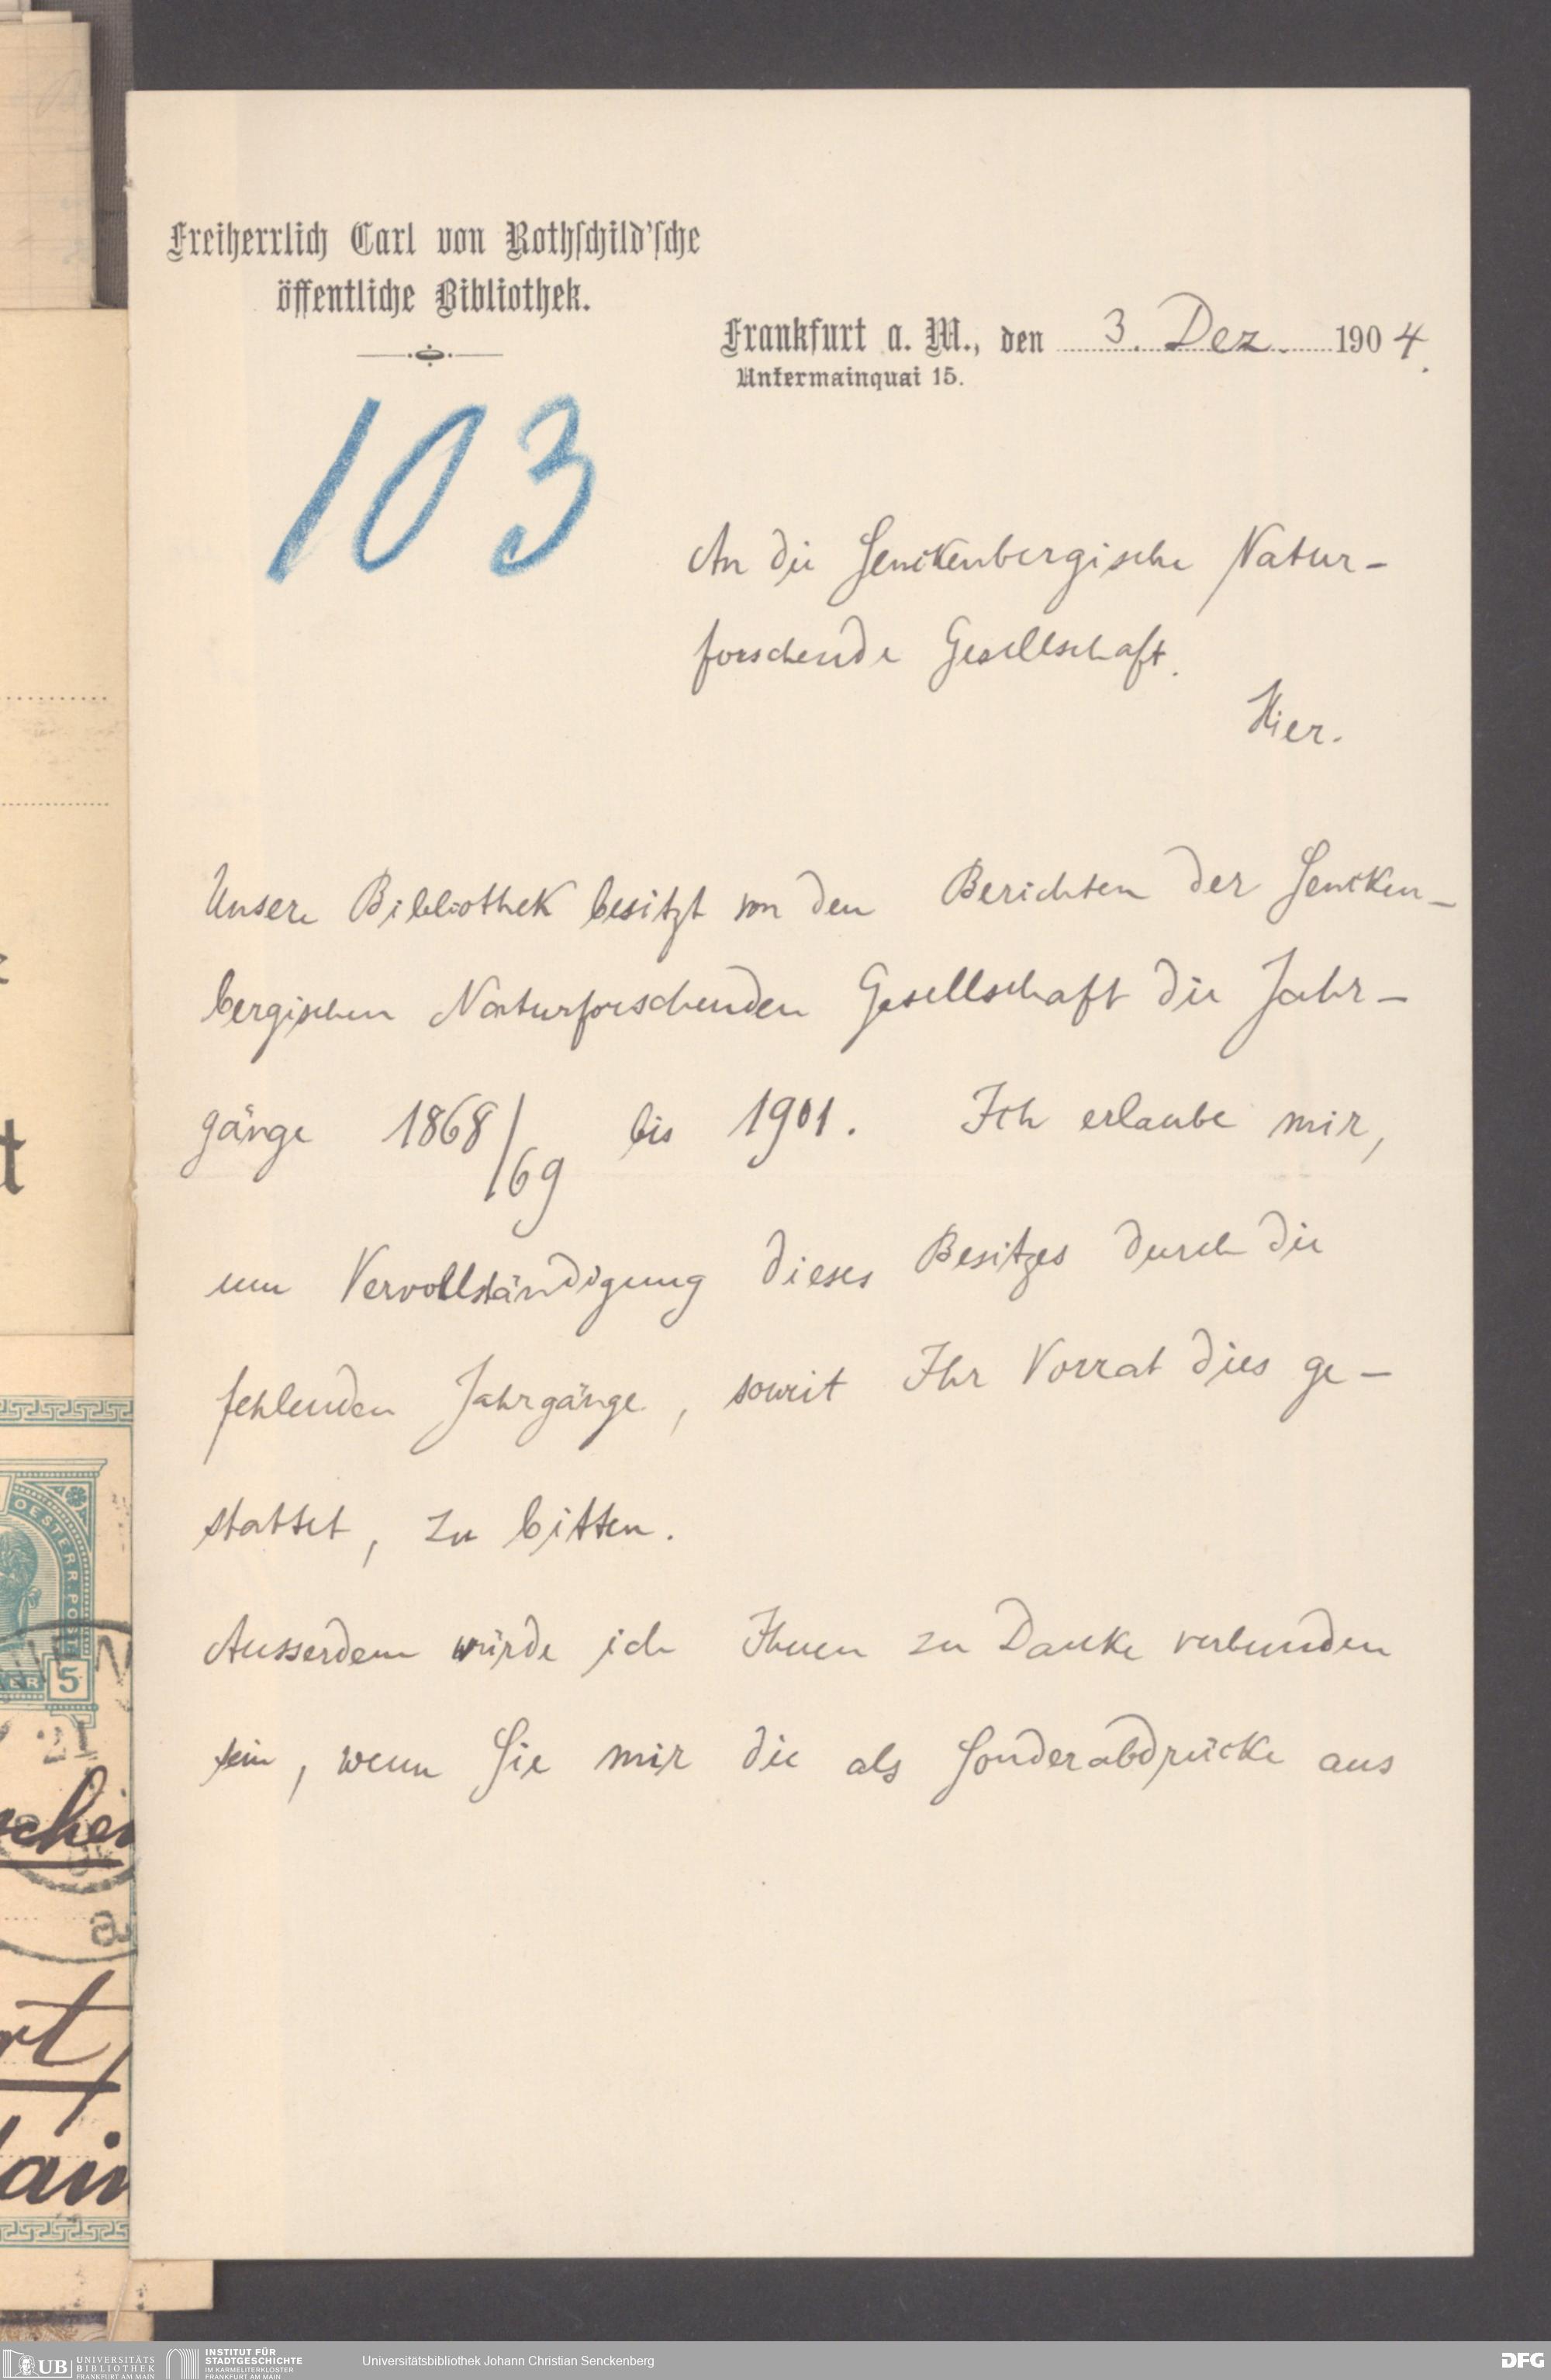 Freiherrlich Carl von Rothschild'sche
öffentliche Bibliothek.
Frankfurt a. M., den 3. Dez. 1904.
Untermainquai 15.
103
An die Senckenbergische Natur-
forschende Gesellschaft.
Hier.
Unsere Bibliothek besitzt von den Berichten der Sencken-
bergischen Naturforschenden Gesellschaft die Jahr-
gänge 1868/69 bis 1901. Ich erlaube mir,
um Vervollständigung dieses Besitzes durch die
fehlenden Jahrgänge, soweit Ihr Vorrat dies ge-
stattet, zu bitten.
Ausserdem würde ich Ihnen zu Danke verbunden
sein, wenn Sie mir die als Sonderabdrücke aus
t
OESTERR. POST
5
21
schen
a
rt
ain
UB UNIVERSITÄTS
BIBLIOTHEK
FRANKFURT AM MAIN
INSTITUT FÜR
STADTGESCHICHTE
IM KARMELITERKLOSTER
FRANKFURT AM MAIN
Universitätsbibliothek Johann Christian Senckenberg
DFG